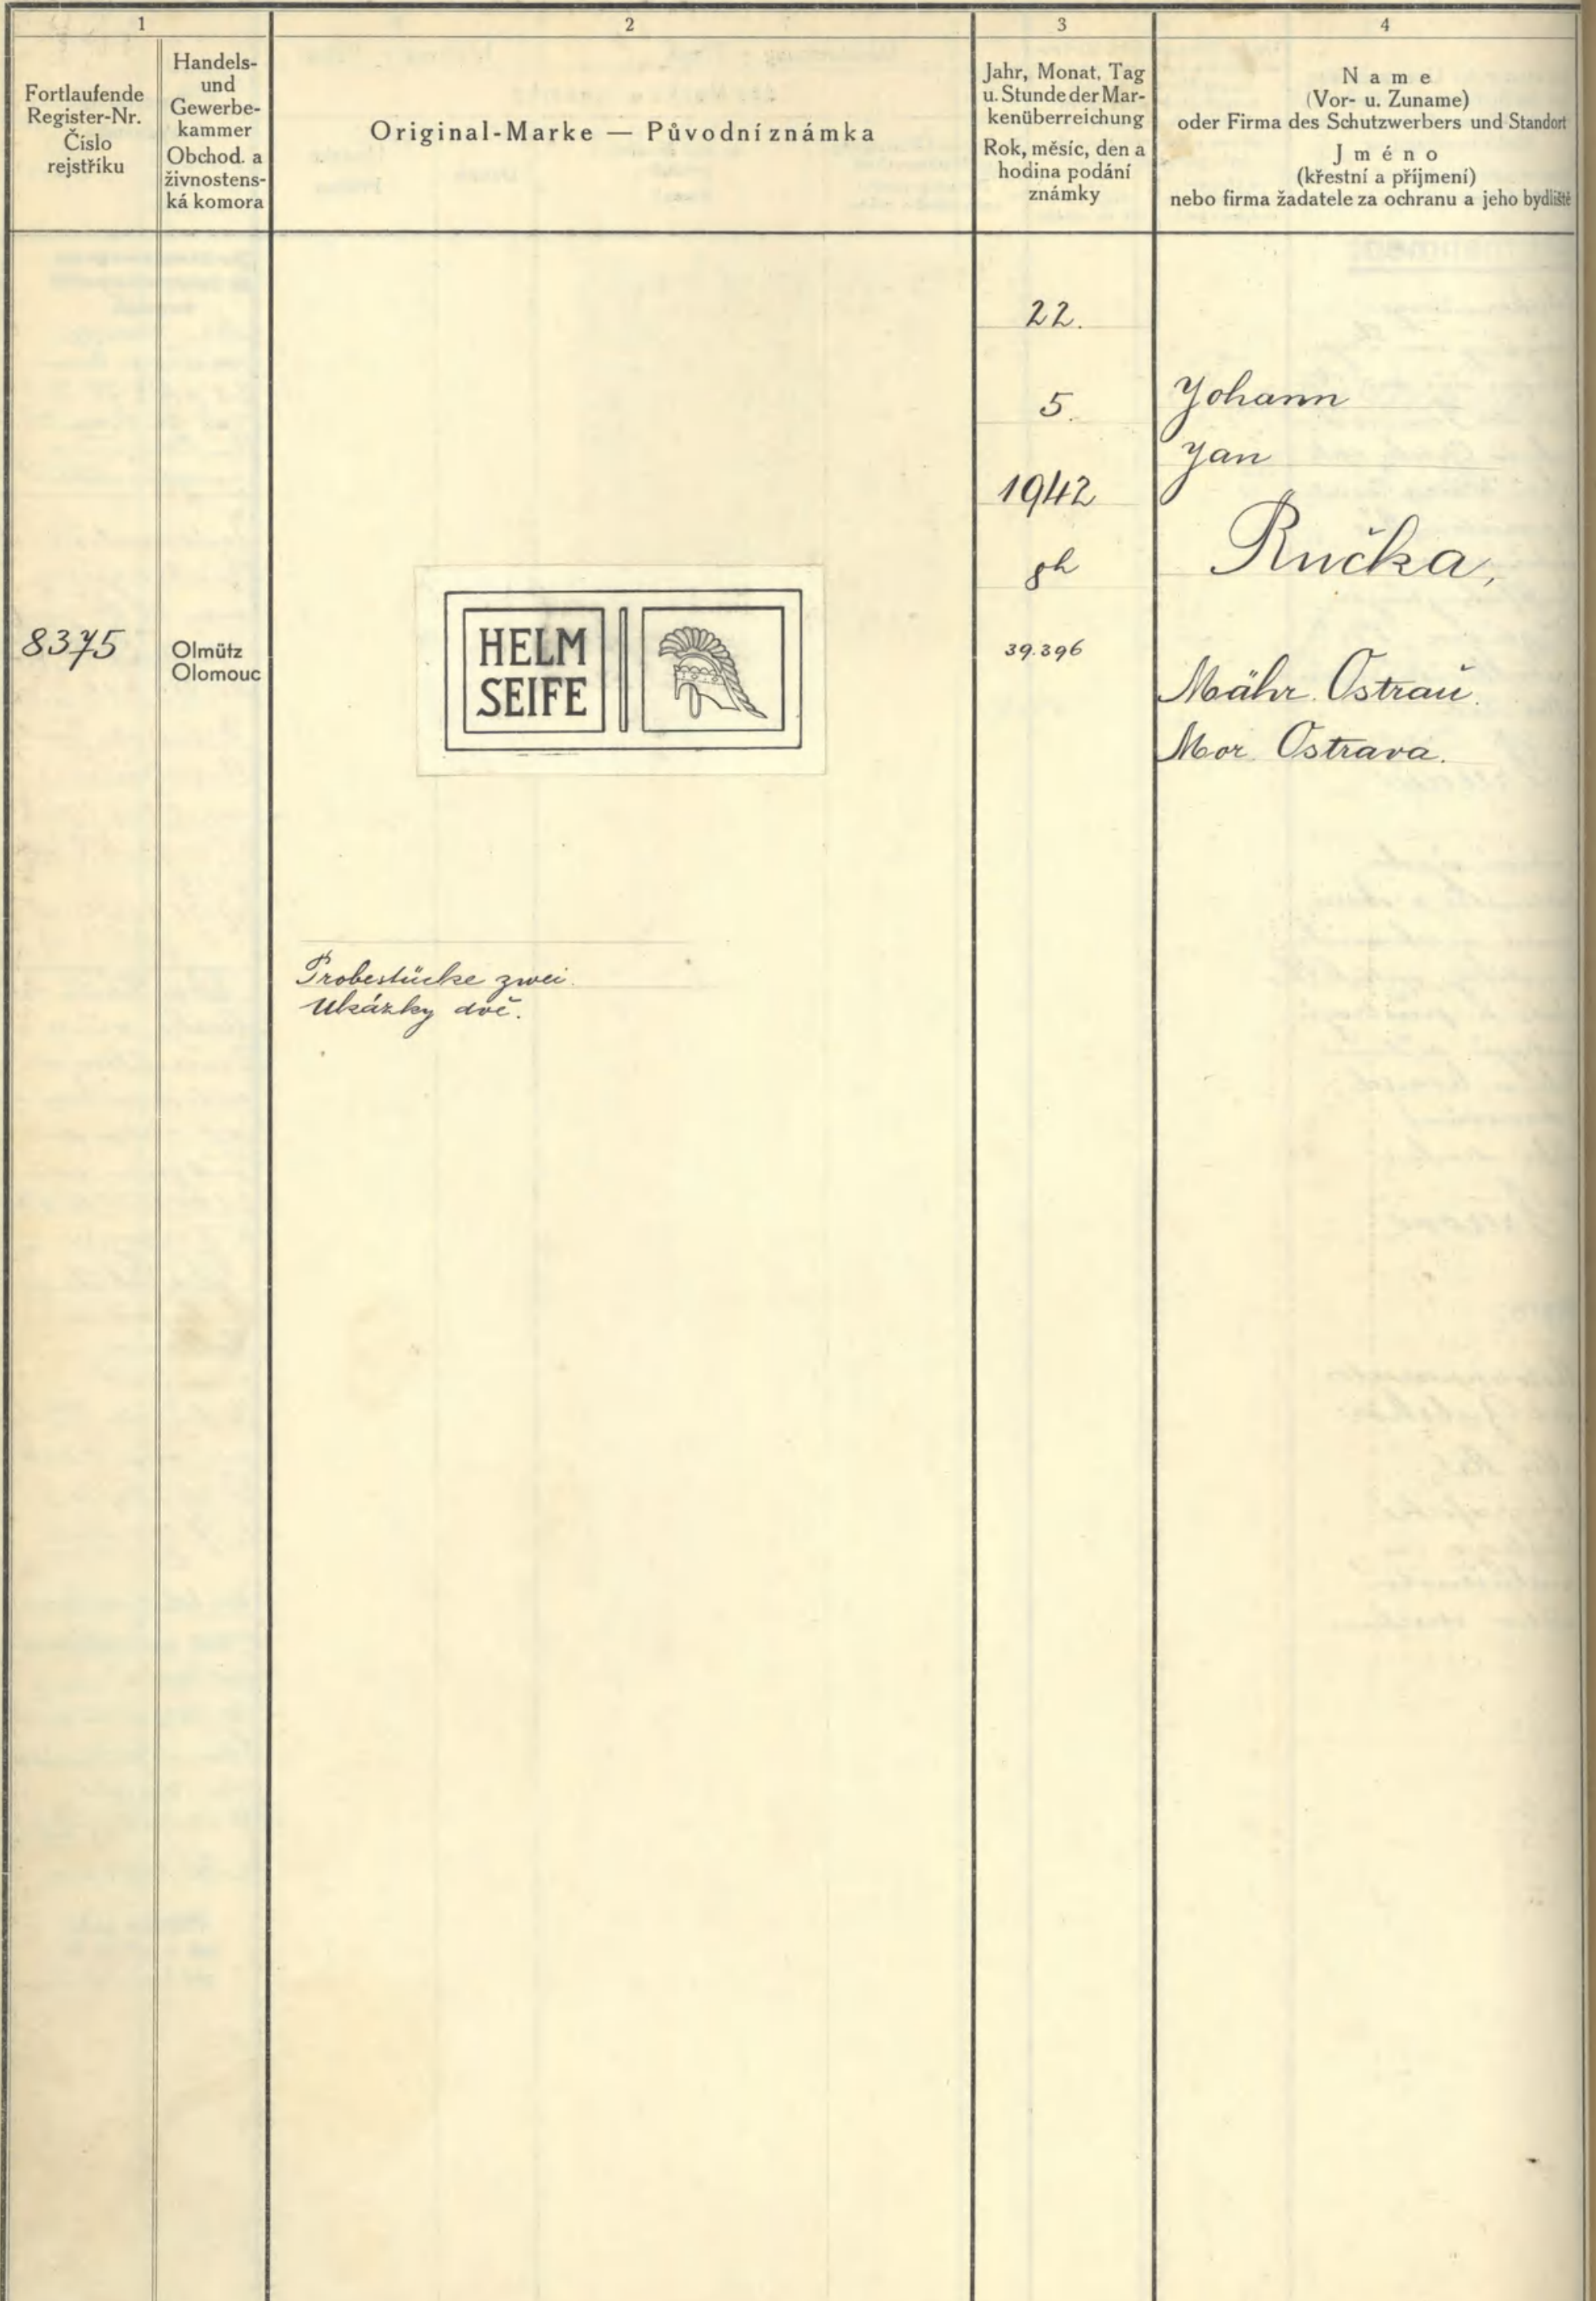 1
Fortlaufende
Register-Nr.
Číslo
rejstříku
Handels-
und
Gewerbe-
kammer
Obchod. a
živnostens-
ká komora
2
Original-Marke — Původní známka
3
Jahr, Monat, Tag
u. Stunde der Mar-
kenüberreichung
Rok, měsíc, den a
hodina podání
známky
4
Name
(Vor- u. Zuname)
oder Firma des Schutzwerbers und Standort
Jméno
(křestní a příjmení)
nebo firma žadatele za ochranu a jeho bydliště
8375
Olmütz
Olomouc
HELM
SEIFE
Probestücke zwei.
Ukázky dvě.
22.
5.
1942
8h
39.396
Johann
Jan
Ručka,
Mähr. Ostrau.
Mor. Ostrava.